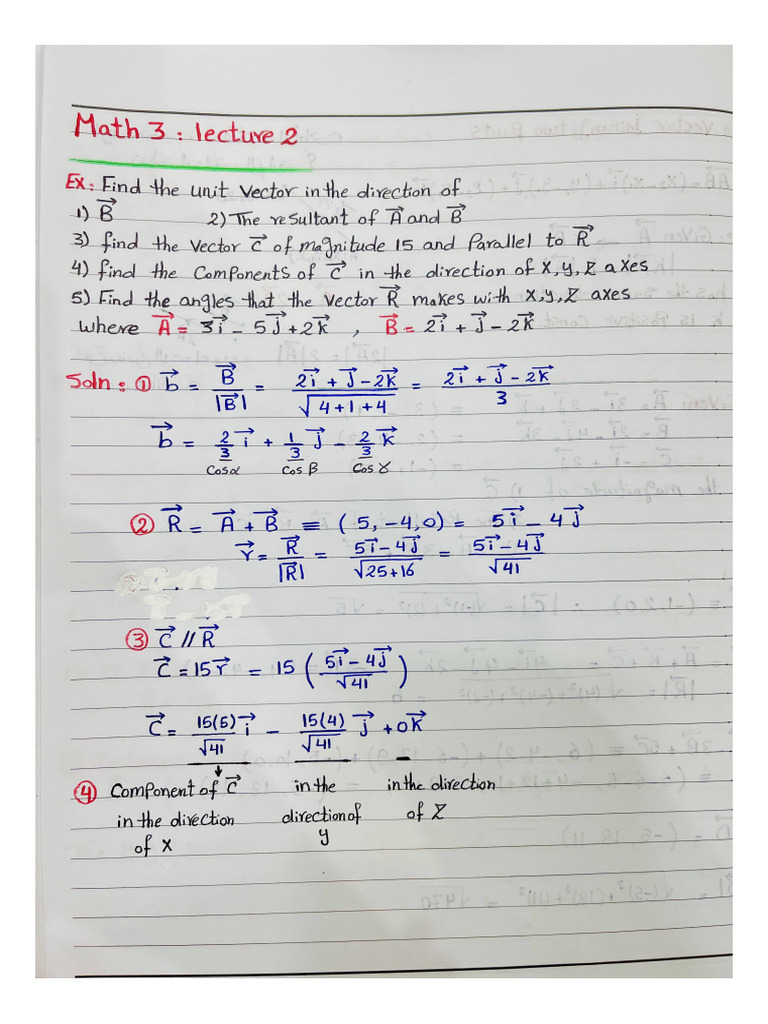 Math 3 : lecture 2
Ex: Find the unit vector in the direction of
1) B⃗ 2) The resultant of A⃗ and B⃗
3) find the vector C⃗ of magnitude 15 and Parallel to R⃗
4) find the components of C⃗ in the direction of x, y, z axes
5) Find the angles that the vector R⃗ makes with x, y, z axes
where A⃗ = 3i⃗ - 5j⃗ + 2k⃗ , B⃗ = 2i⃗ + j⃗ - 2k⃗
Soln: ① b⃗ = B⃗/|B⃗| = (2i⃗ + j⃗ - 2k⃗)/√(4+1+4) = (2i⃗ + j⃗ - 2k⃗)/3
b⃗ = 2/3 i⃗ + 1/3 j⃗ - 2/3 k⃗
cosα cosβ cosγ
② R⃗ = A⃗ + B⃗ ≡ (5, -4, 0) = 5i⃗ - 4j⃗
r⃗ = R⃗/|R⃗| = (5i⃗ - 4j⃗)/√(25+16) = (5i⃗ - 4j⃗)/√41
③ C⃗ // R⃗
C⃗ = 15r⃗ = 15 ((5i⃗ - 4j⃗)/√41)
C⃗ = 15(5)/√41 i⃗ - 15(4)/√41 j⃗ + 0k⃗
④ Component of C⃗ in the in the direction
in the direction direction of of z
of x y